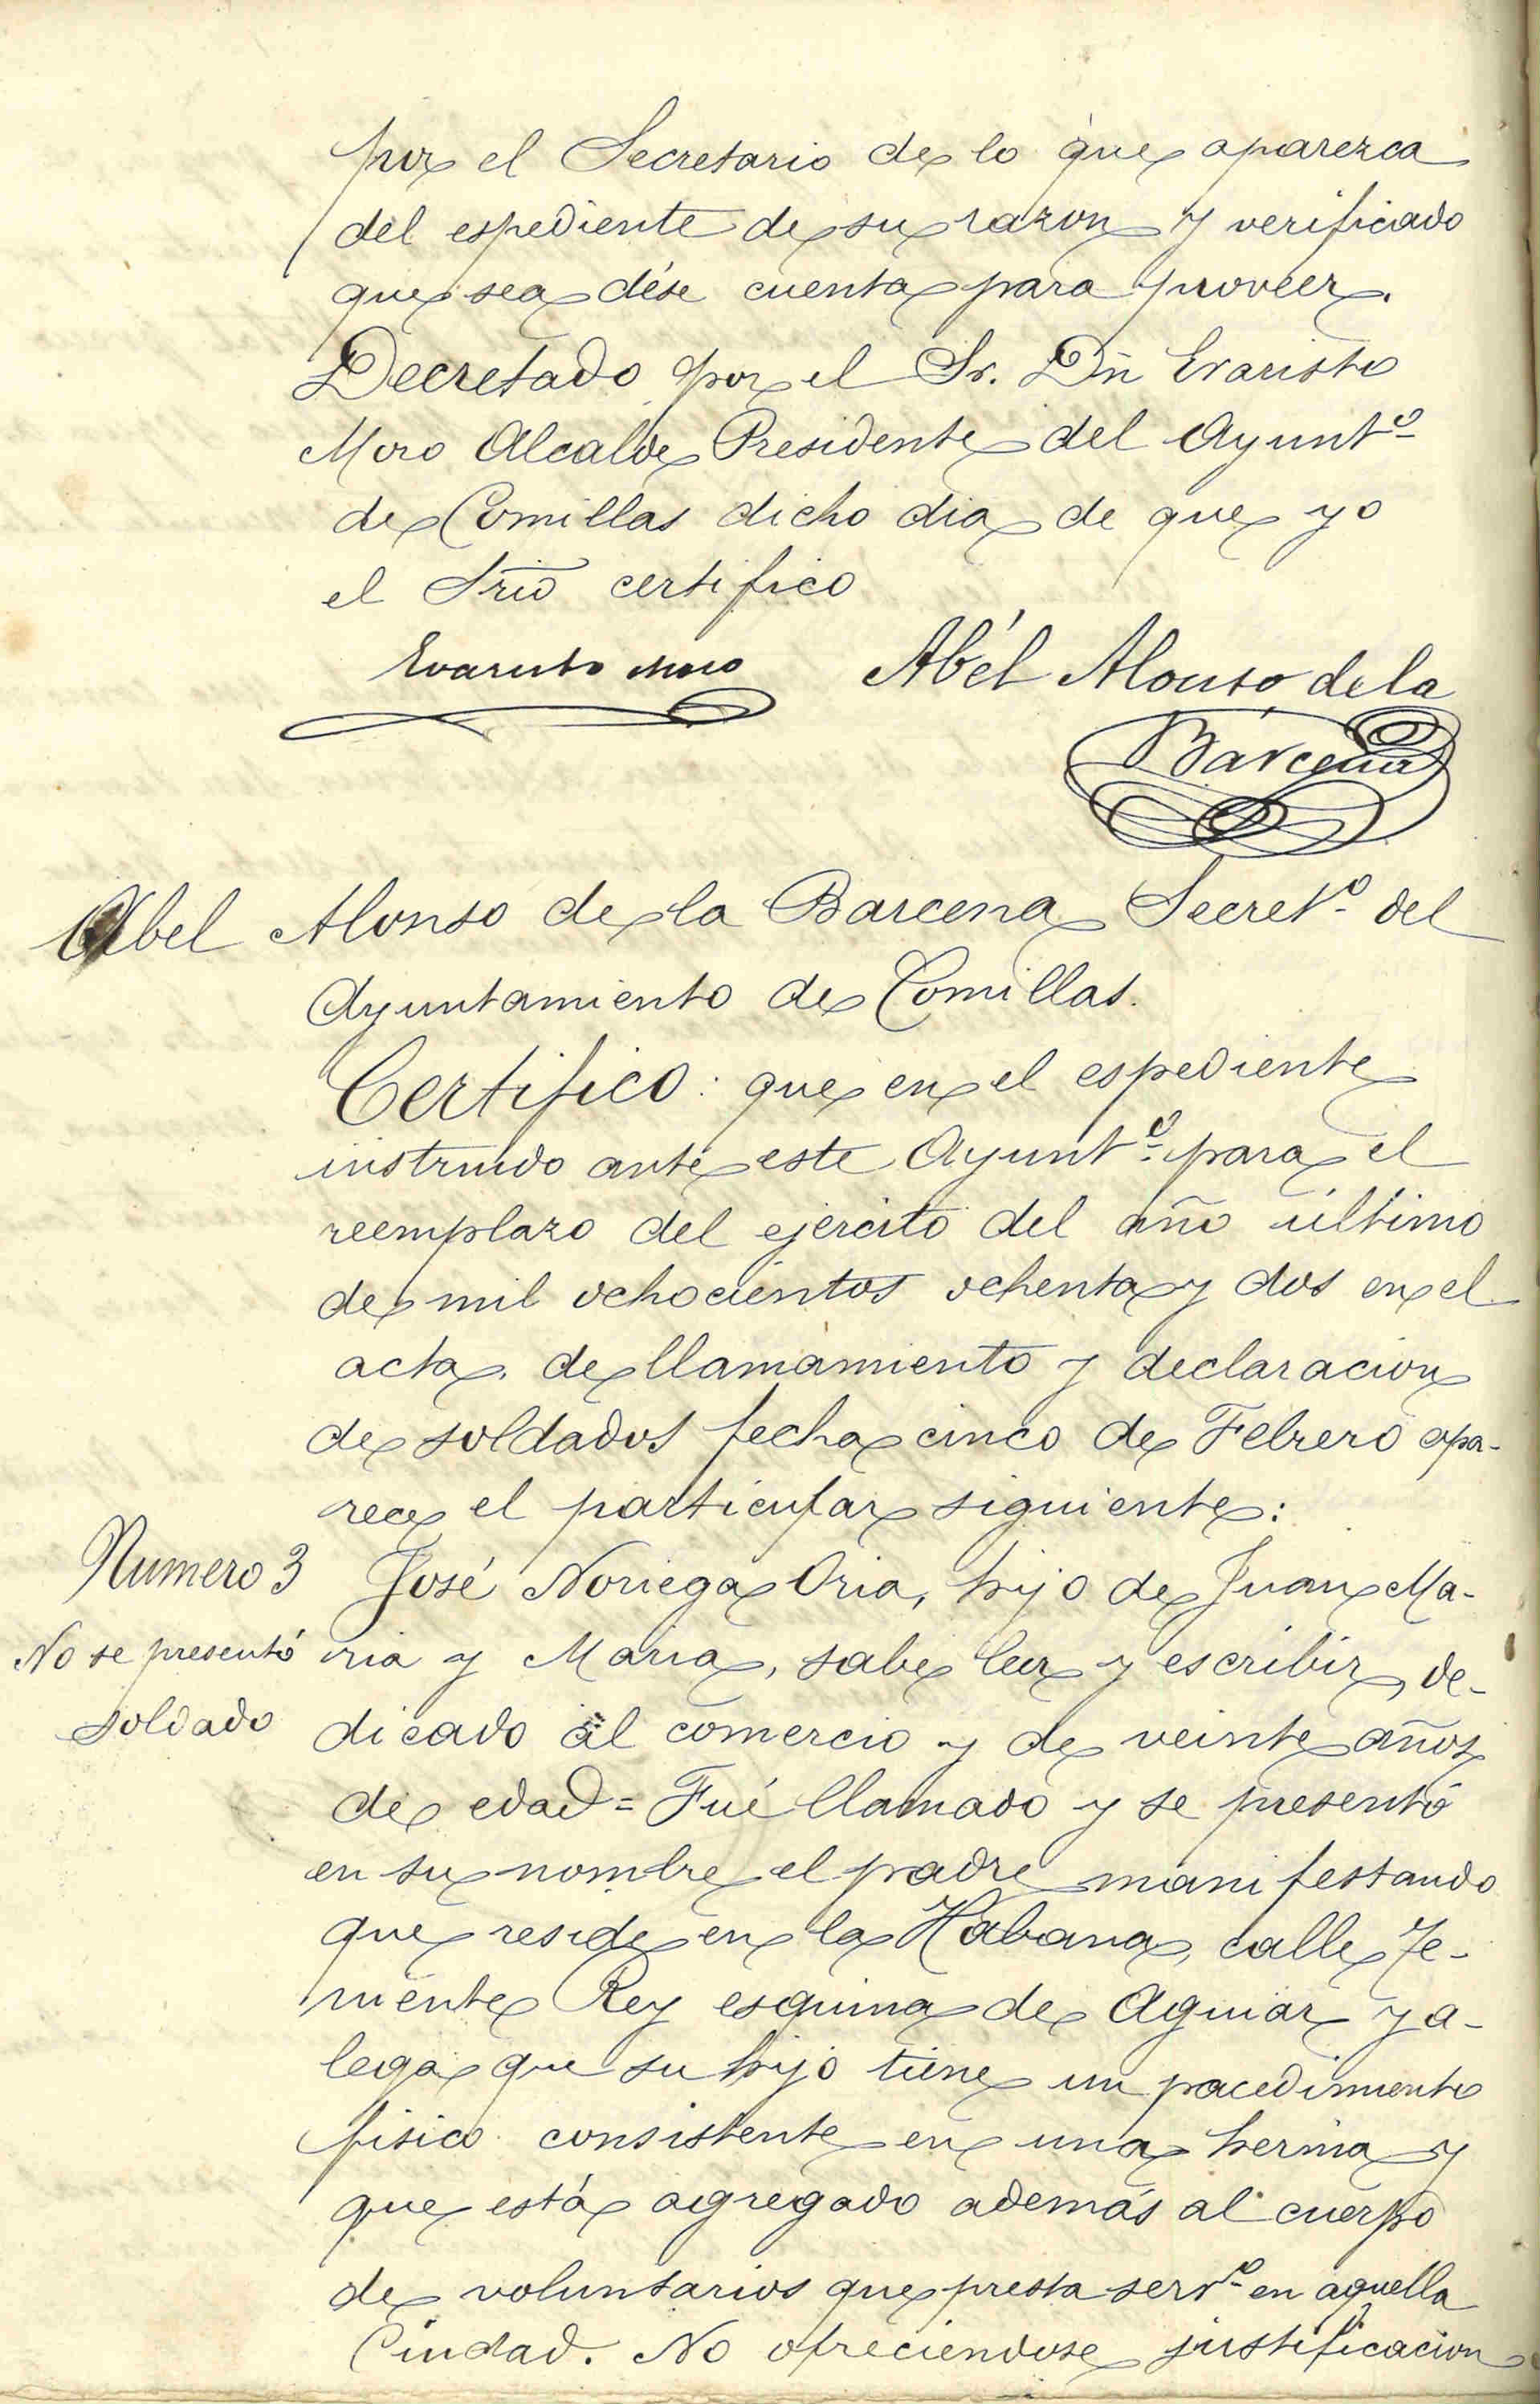 por el Secretario de lo que aparezca
del espediente de su razon y verificado
que sea dése cuenta para proveer.
Decretado por el Sr. Dn Evaristo
Moro Alcalde Presidente del Ayuntº
de Comillas dicho dia de que yo
el Srio certifico
Evaristo Moro
Abél Alonso de la
Bárcena
Abel Alonso de la Barcena Secretº del
Ayuntamiento de Comillas.
Certifico: que en el espediente
instruido ante este Ayuntº para el
reemplazo del ejército del año último
de mil ochocientos ochenta y dos en el
acta de llamamiento y declaracion
de soldados fecha cinco de Febrero apa-
rece el particular siguiente:
Numero 3
No se presentó
soldado
José Noriega Oria, hijo de Juan Ma-
ria y Maria, sabe leer y escribir, de-
dicado al comercio y de veinte años
de edad = Fué llamado y se presentó
en su nombre el padre manifestando
que reside en la Habana, calle Te-
niente Rey esquina de Aguiar y a-
lega que su hijo tiene un pacedimiento
fisico consistente en una hernia y
que está agregado además al cuerpo
de voluntarios que presta servº en aquella
Ciudad. No ofreciendose justificacion